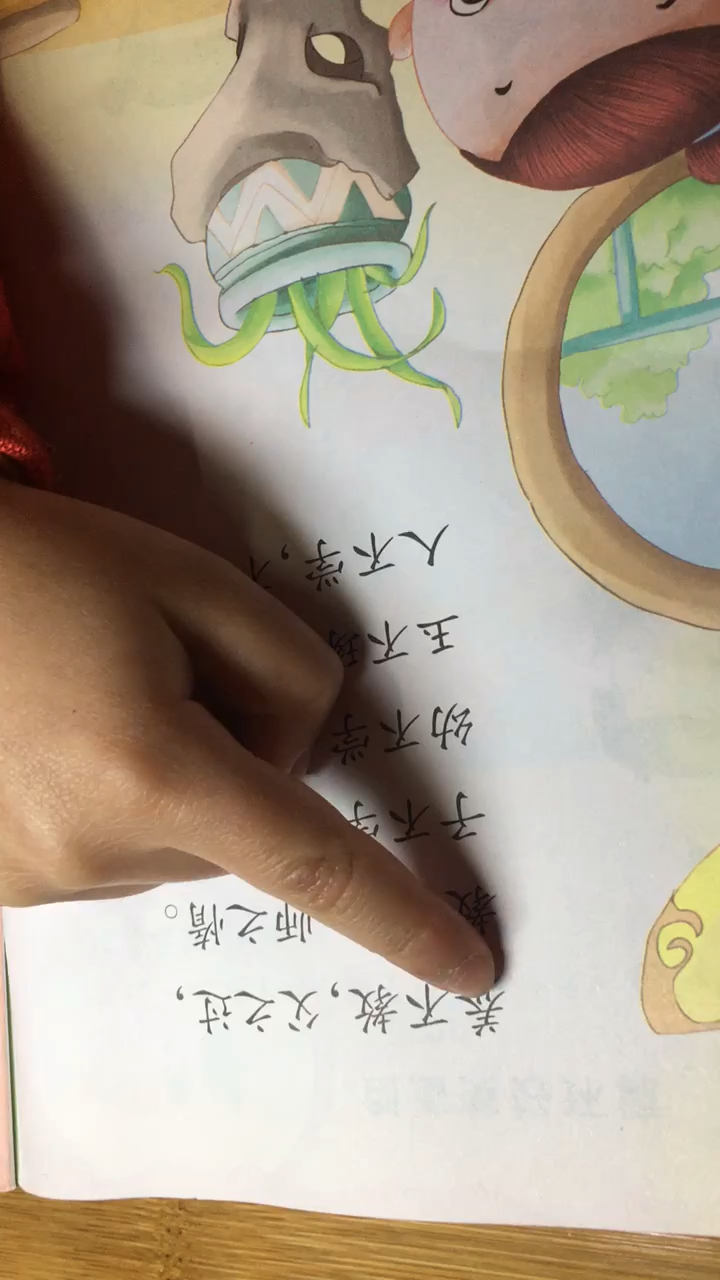 养不教，父之过，
教 师之惰。
子不学
幼不学
玉不琢
人不学，不